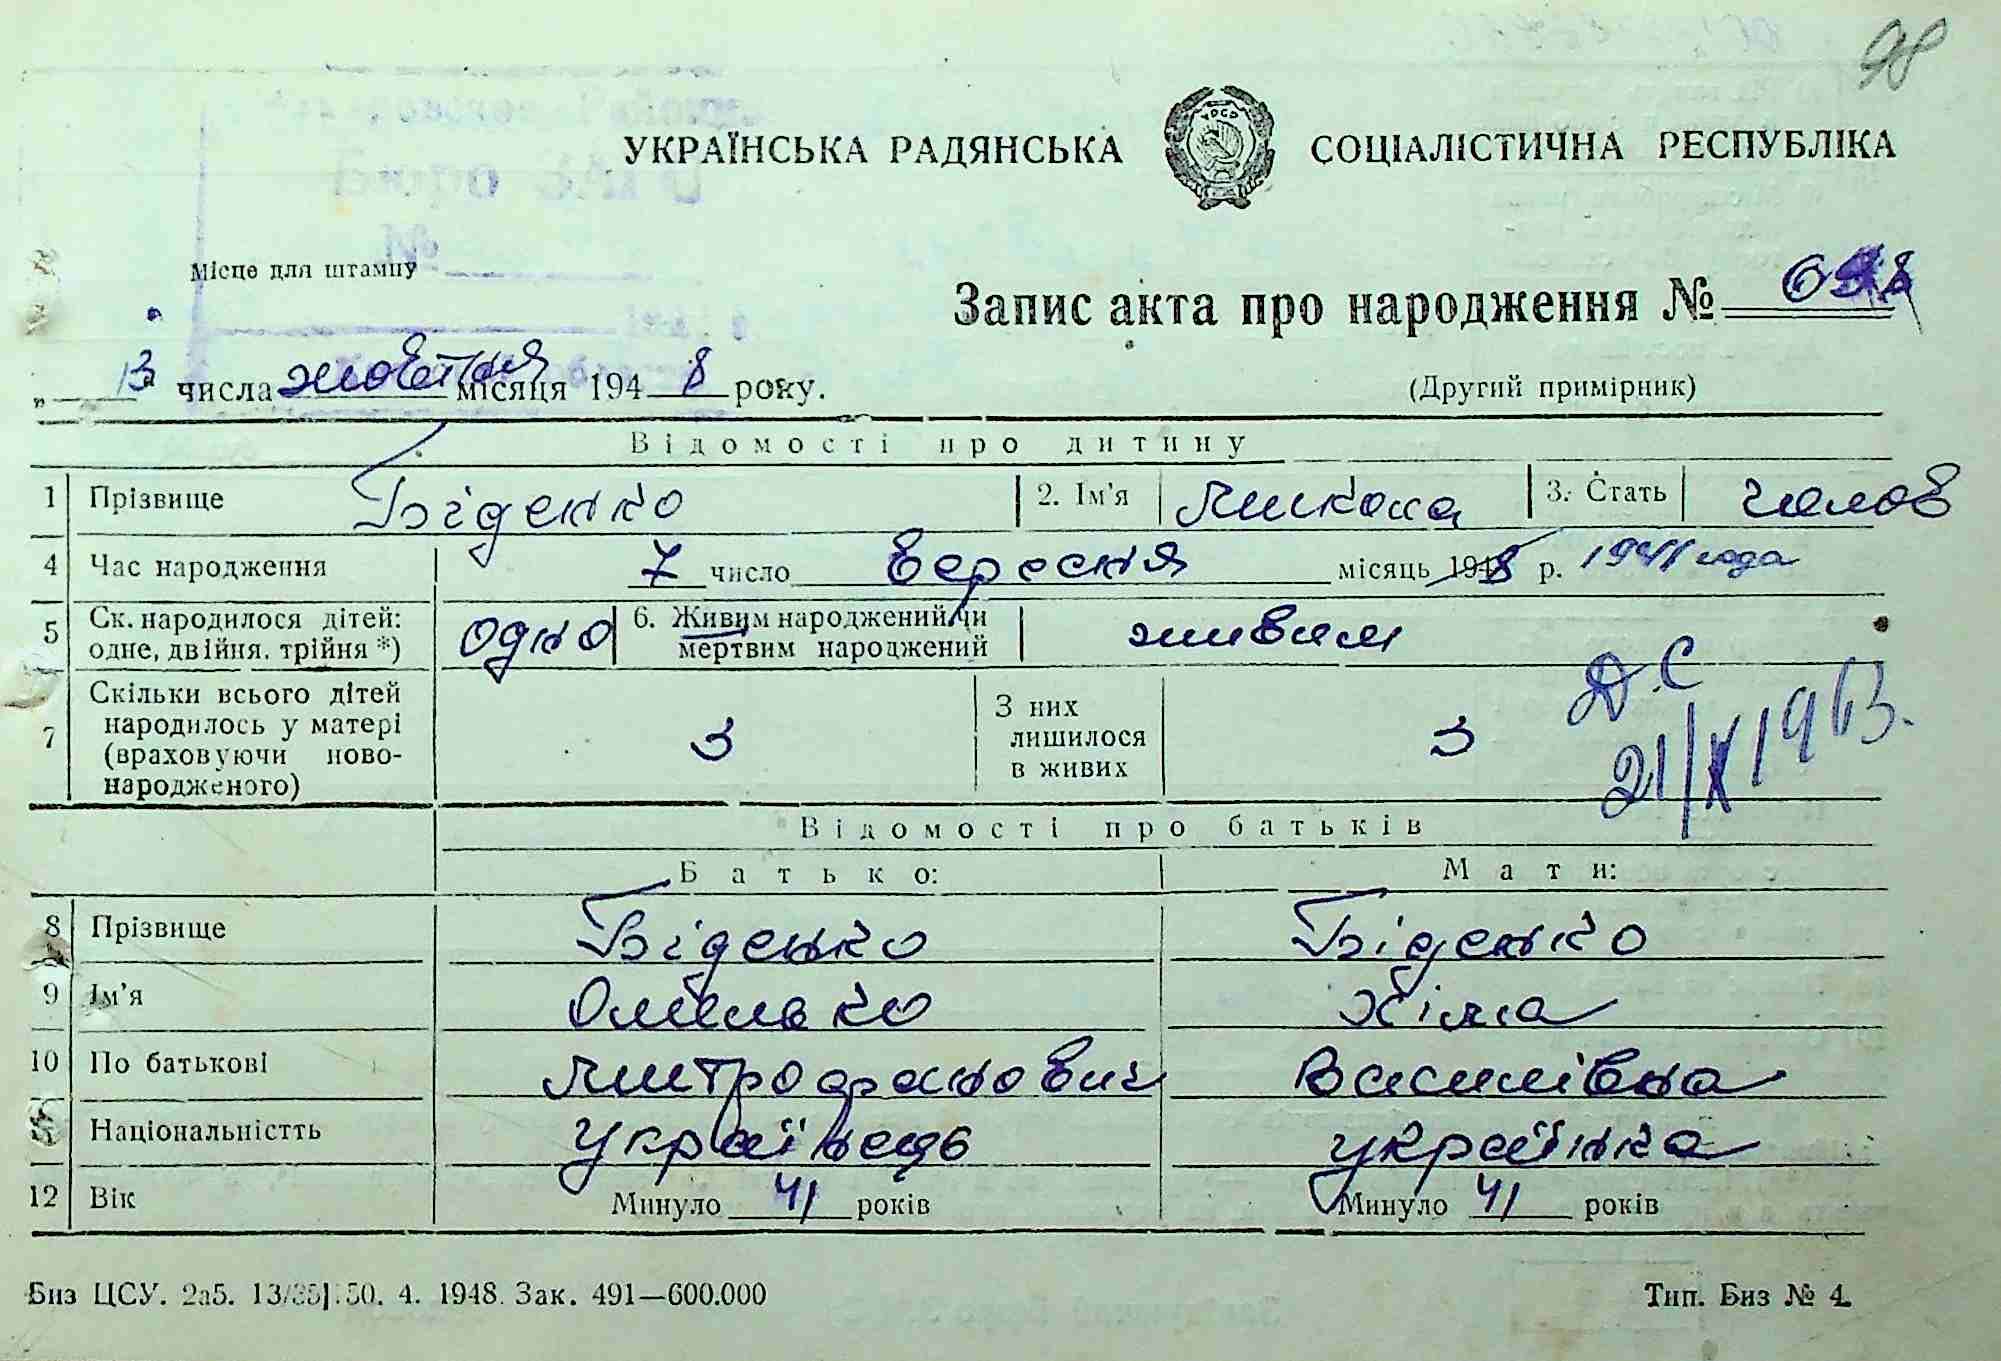 98
УКРАЇНСЬКА РАДЯНСЬКА СОЦІАЛІСТИЧНА РЕСПУБЛІКА
УРСР
Місце для штампу
Запис акта про народження №
„ 13 " числа жовтня місяця 1948 року.
(Другий примірник)
Відомості про дитину
1 Прізвище Біденко 2. Ім'я Микола 3. Стать чолов
4 Час народження 7 число вересня місяць 1948 р. 1941 года
5 Ск. народилося дітей: одне, двійня, трійня *) одно 6. Живим народжений чи мертвим народжений живим
7 Скільки всього дітей народилось у матері (враховуючи новонародженого) 3 З них лишилося в живих 3
Д.С
21/X 1963.
Відомості про батьків
Батько: Мати:
8 Прізвище Біденко Біденко
9 Ім'я Омелько Хіма
10 По батькові Митрофанович Василівна
Національністть українець українка
12 Вік Минуло 41 років Минуло 41 років
Биз ЦСУ. 2а5. 50. 4. 1948. Зак. 491—600.000 Тип. Биз № 4.